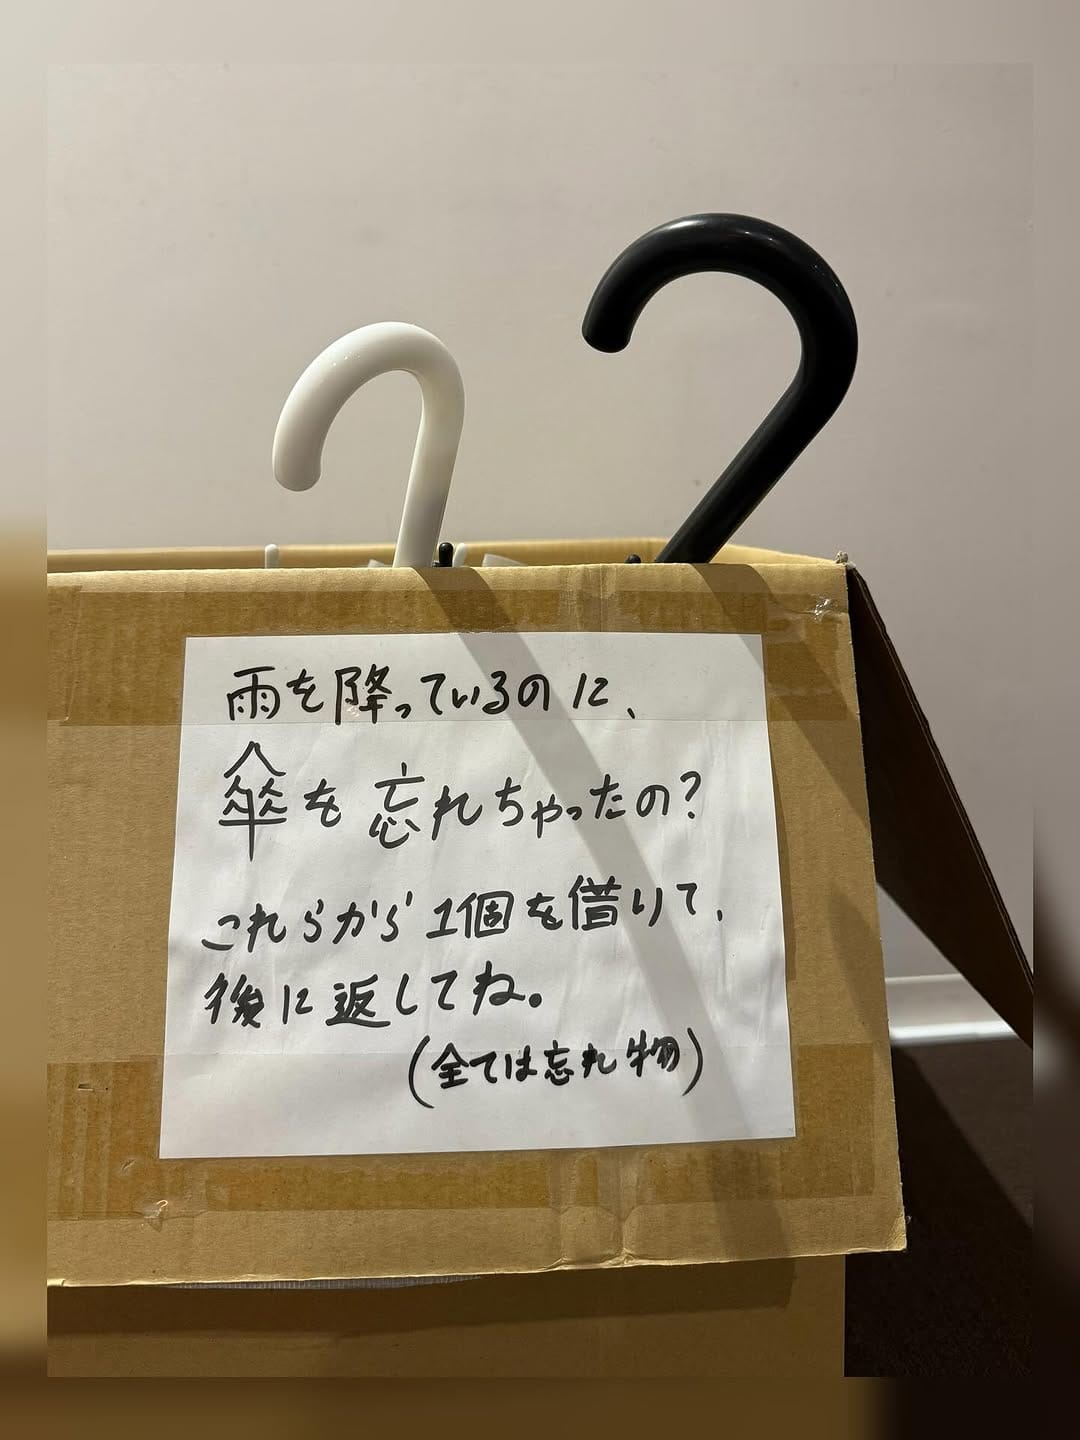 雨を降っているのに、
傘を忘れちゃったの?
これらから1個を借りて、
後に返してね。
(全ては忘れ物)